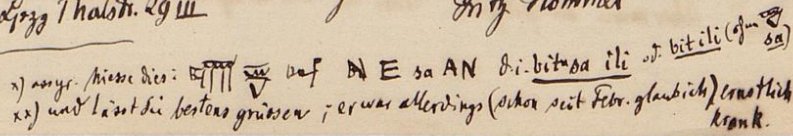 Lpzg Thalstr. 29 III
Fritz Hommel
x) assyr. hiesse dies: auf E sa AN d.i. bitu sa ili od. bit ili (ohne sa)
xx) und lässt Sie bestens grüssen; er war allerdings (schon seit Febr. glaub ich) ernstlich
krank.